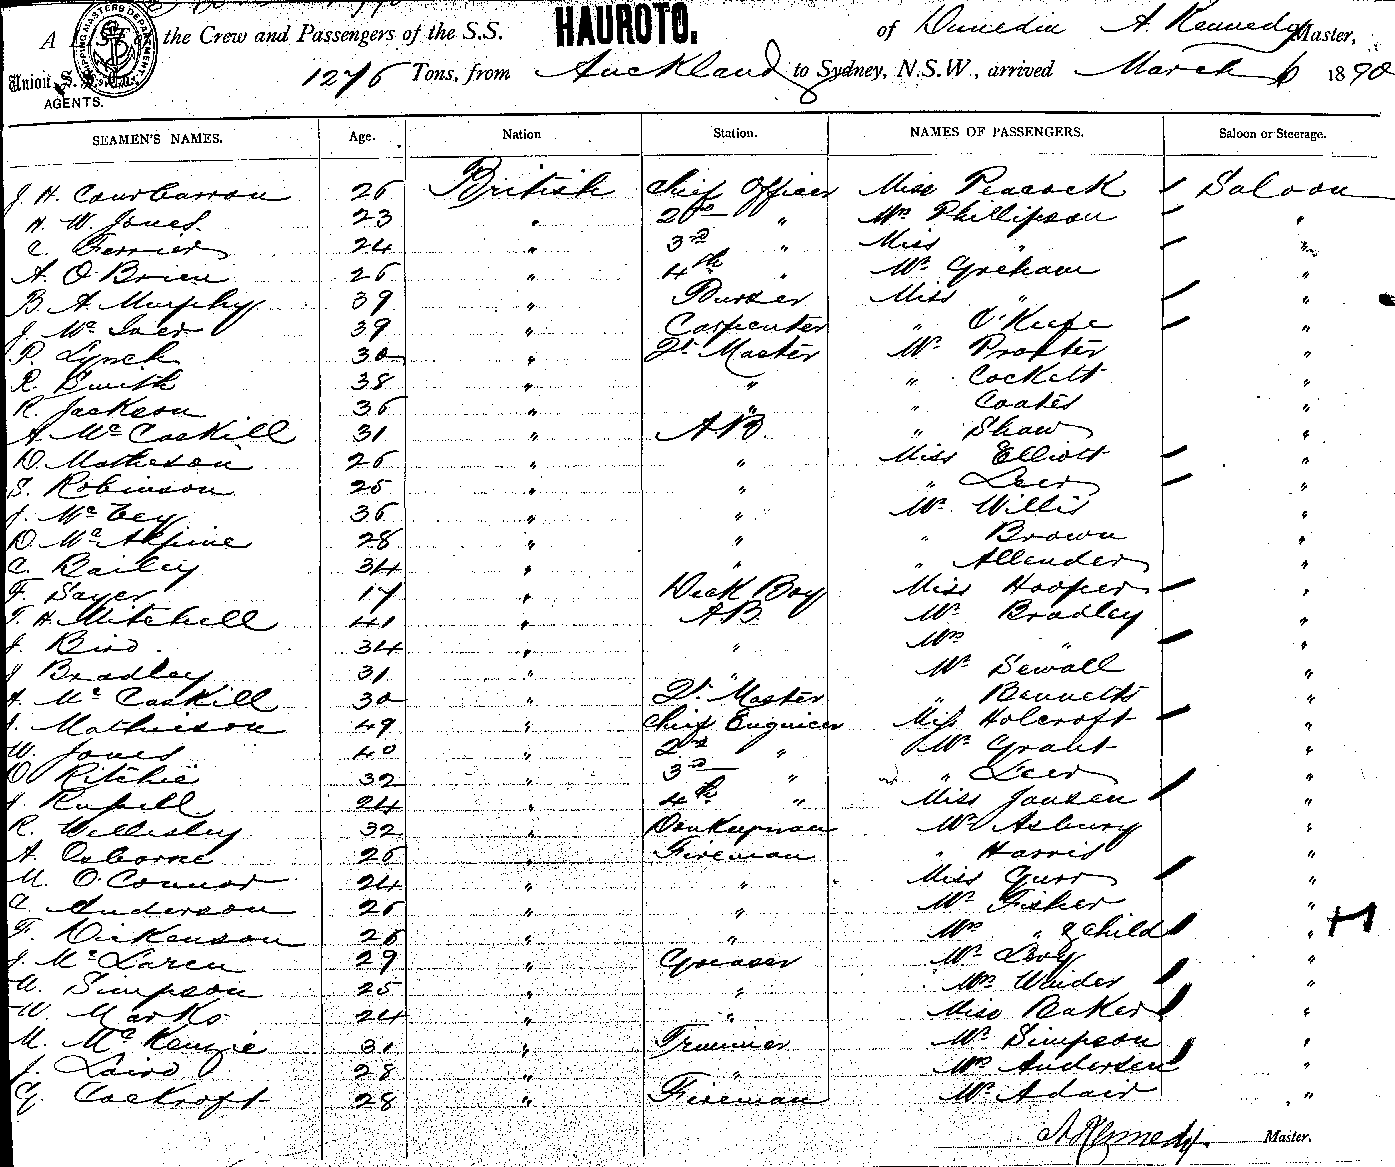 A the Crew and Passengers of the S.S. HAUROTO. of Dunedin A. Kennedy Master,
Union S.S. Co. 1276 Tons, from Auckland to Sydney, N.S.W., arrived March 6 1890
AGENTS.
SEAMEN'S NAMES. Age. Nation Station. NAMES OF PASSENGERS. Saloon or Steerage.
J. H. 26 British Chief Officer Miss Peacock Saloon
H. W. Jones 23 " 2nd " Mrs Phillipson "
C. Ferrier 24 " 3rd " Miss " "
A. O'Brien 26 " 4th " Mr Greham "
B. A. Murphy 39 " Purser Miss " "
J. Mc 39 " Carpenter " O'Keefe "
P. Lynch 30 " Qr Master Mr Procter "
R. Smith 38 " " " Cockett "
R. Jackson 36 " " " Coates "
A. McCaskill 31 " AB " Shaw "
D. Matheson 26 " " Miss Elliott "
S. Robinson 25 " " " Leer "
J. Mc 36 " " Mr Willis "
D. McAlpine 28 " " " Brown "
C. Bailey 34 " " " Allender "
F. Sayer 17 " Deck Boy Miss Hooper "
T. H. Mitchell 41 " AB Mr Bradley "
J. Bird 34 " " Mrs " "
J Bradley 31 " " Mr Sewall "
A. McCaskill 30 " Qr Master " Bennetts "
J. Mathieson 49 " Chief Engineer Miss Holcroft "
W. Jones 40 " 2nd " Mr Grant "
D Ritchie 32 " 3rd " " Leer "
J. Russell 24 " 4th " Miss Jansen "
R. Wellisley 32 " Donkeyman Mr Asbury "
A. Osborne 26 " Fireman " Harris "
M. O'Connor 24 " " Miss Gurr "
C. Anderson 26 " " Mr Fisher "
F. Dickenson 26 " " Mrs " & child "
J. McLaren 29 " Greaser Mr Levy "
W. Simpson 25 " " Mrs Winder "
W. Marks 24 " " Miss Baker "
M. McKenzie 31 " Trimmer Mr Simpson "
J. Laird 28 " " Mrs Andersen "
G. Cockroft 28 " Fireman Mr Adair "
A Kennedy. Master.